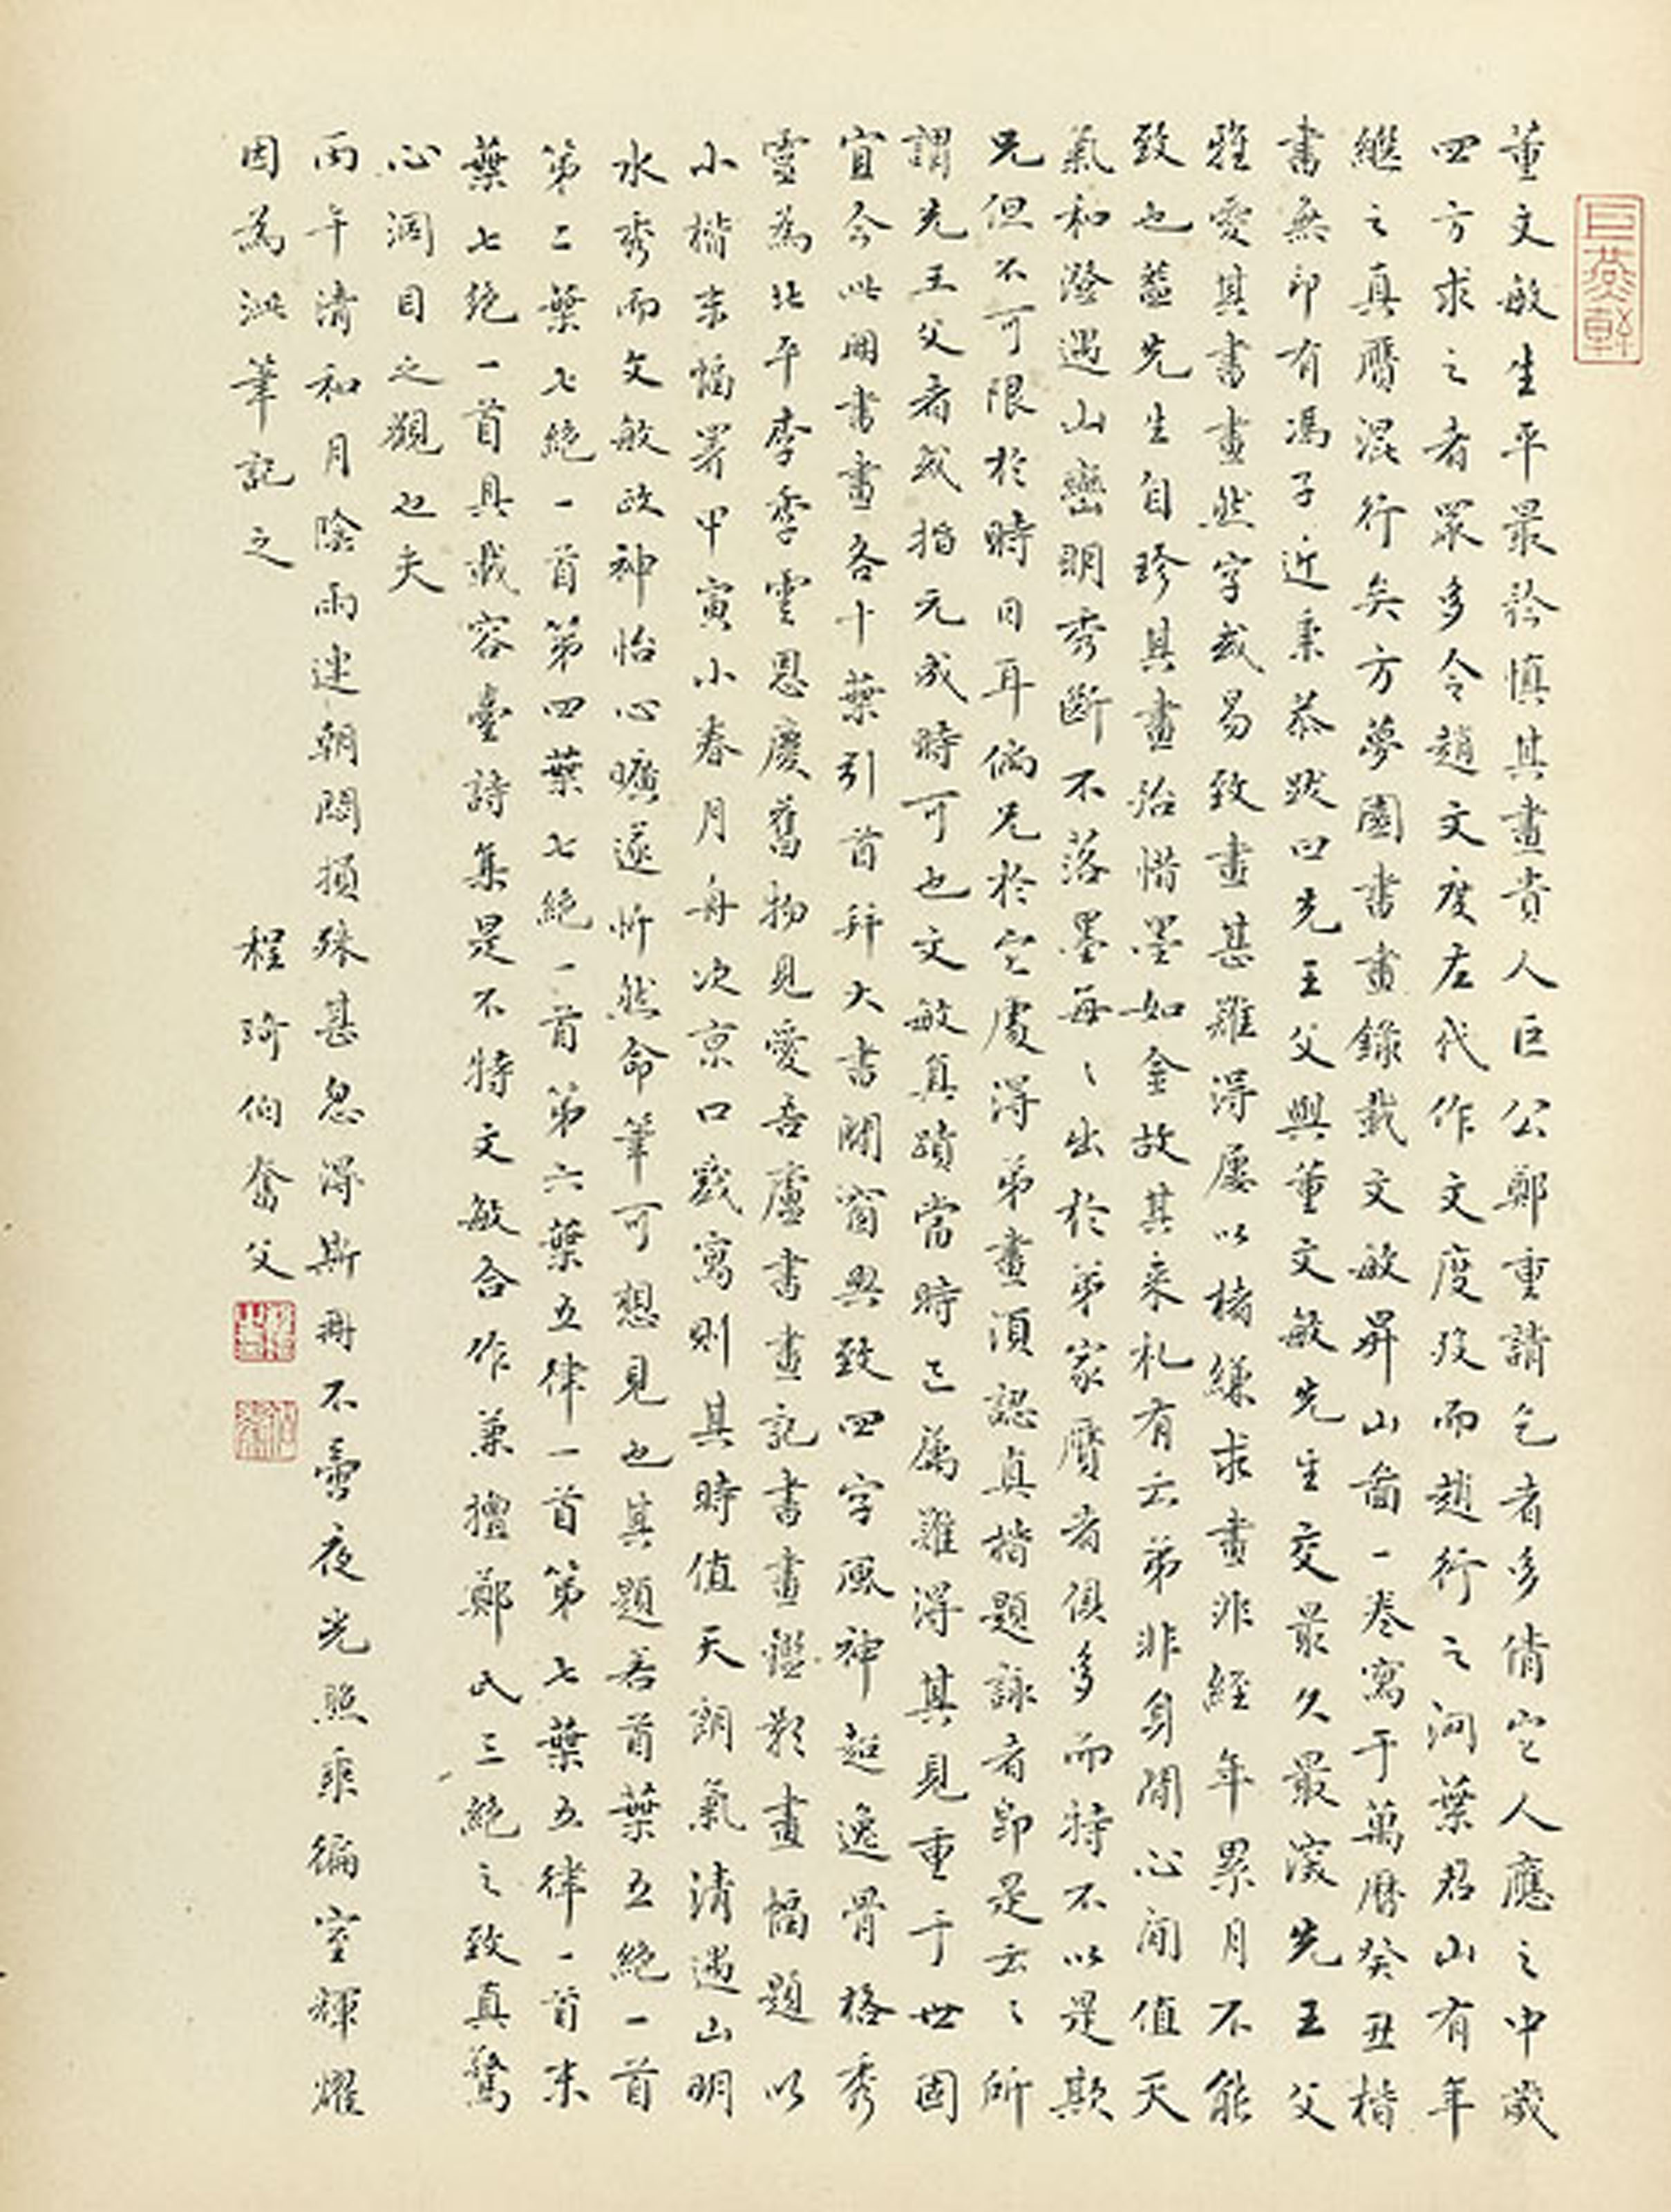 董文敏生平最矜慎其畫貴人巨公鄭重請乞者多倩它人應之中歲
四方求之者眾多令趙文度左代作文度歿而趙行之洞葉君山有年
繼之真贗混行矣方夢園書畫錄載文敏昇山啚一卷寫于萬曆癸丑楷
書無印有馮子近秉恭跋曰先王父與董文敏先生交最久最深先王父
雅愛其書畫然字或易致畫甚難得屢以楮縑求畫非經年累月不能
致也蓋先生自珍其畫殆惜墨如金故其来札有云弟非身閒心閒值天
氣和澄遇山巒明秀斷不落墨每〻出於弟家贗者俱多而特不以是欺
兄但不可限於時日耳倘兄於它處得弟畫須認真楷題詠者即是云〻所
謂先王父者或指元成時可也文敏真蹟當時已属難得其見重于世固
宜今此冊書畫各十葉引首并大書閒窗興致四字風神超逸骨格秀
靈為北平李季雲恩慶舊物見愛吾廬書畫記書畫鑑影畫幅題以
小楷末幅署甲寅小春月舟次京口戲寫則其時值天朗氣清遇山明
水秀而文敏政神怡心曠遂忻然命筆可想見也其題若首葉五絕一首
第二葉七絕一首第四葉七絕一首第六葉五律一首第七葉五律一首末
葉七絕一首具載容臺詩集是不特文敏合作兼擅鄭氏三絕之致真驚
心洞目之觀也夫
丙午清和月陰雨連朝悶損殊甚忽得斯冊不啻夜光照乘徧室輝耀
因為泚筆記之
程琦伯奮父